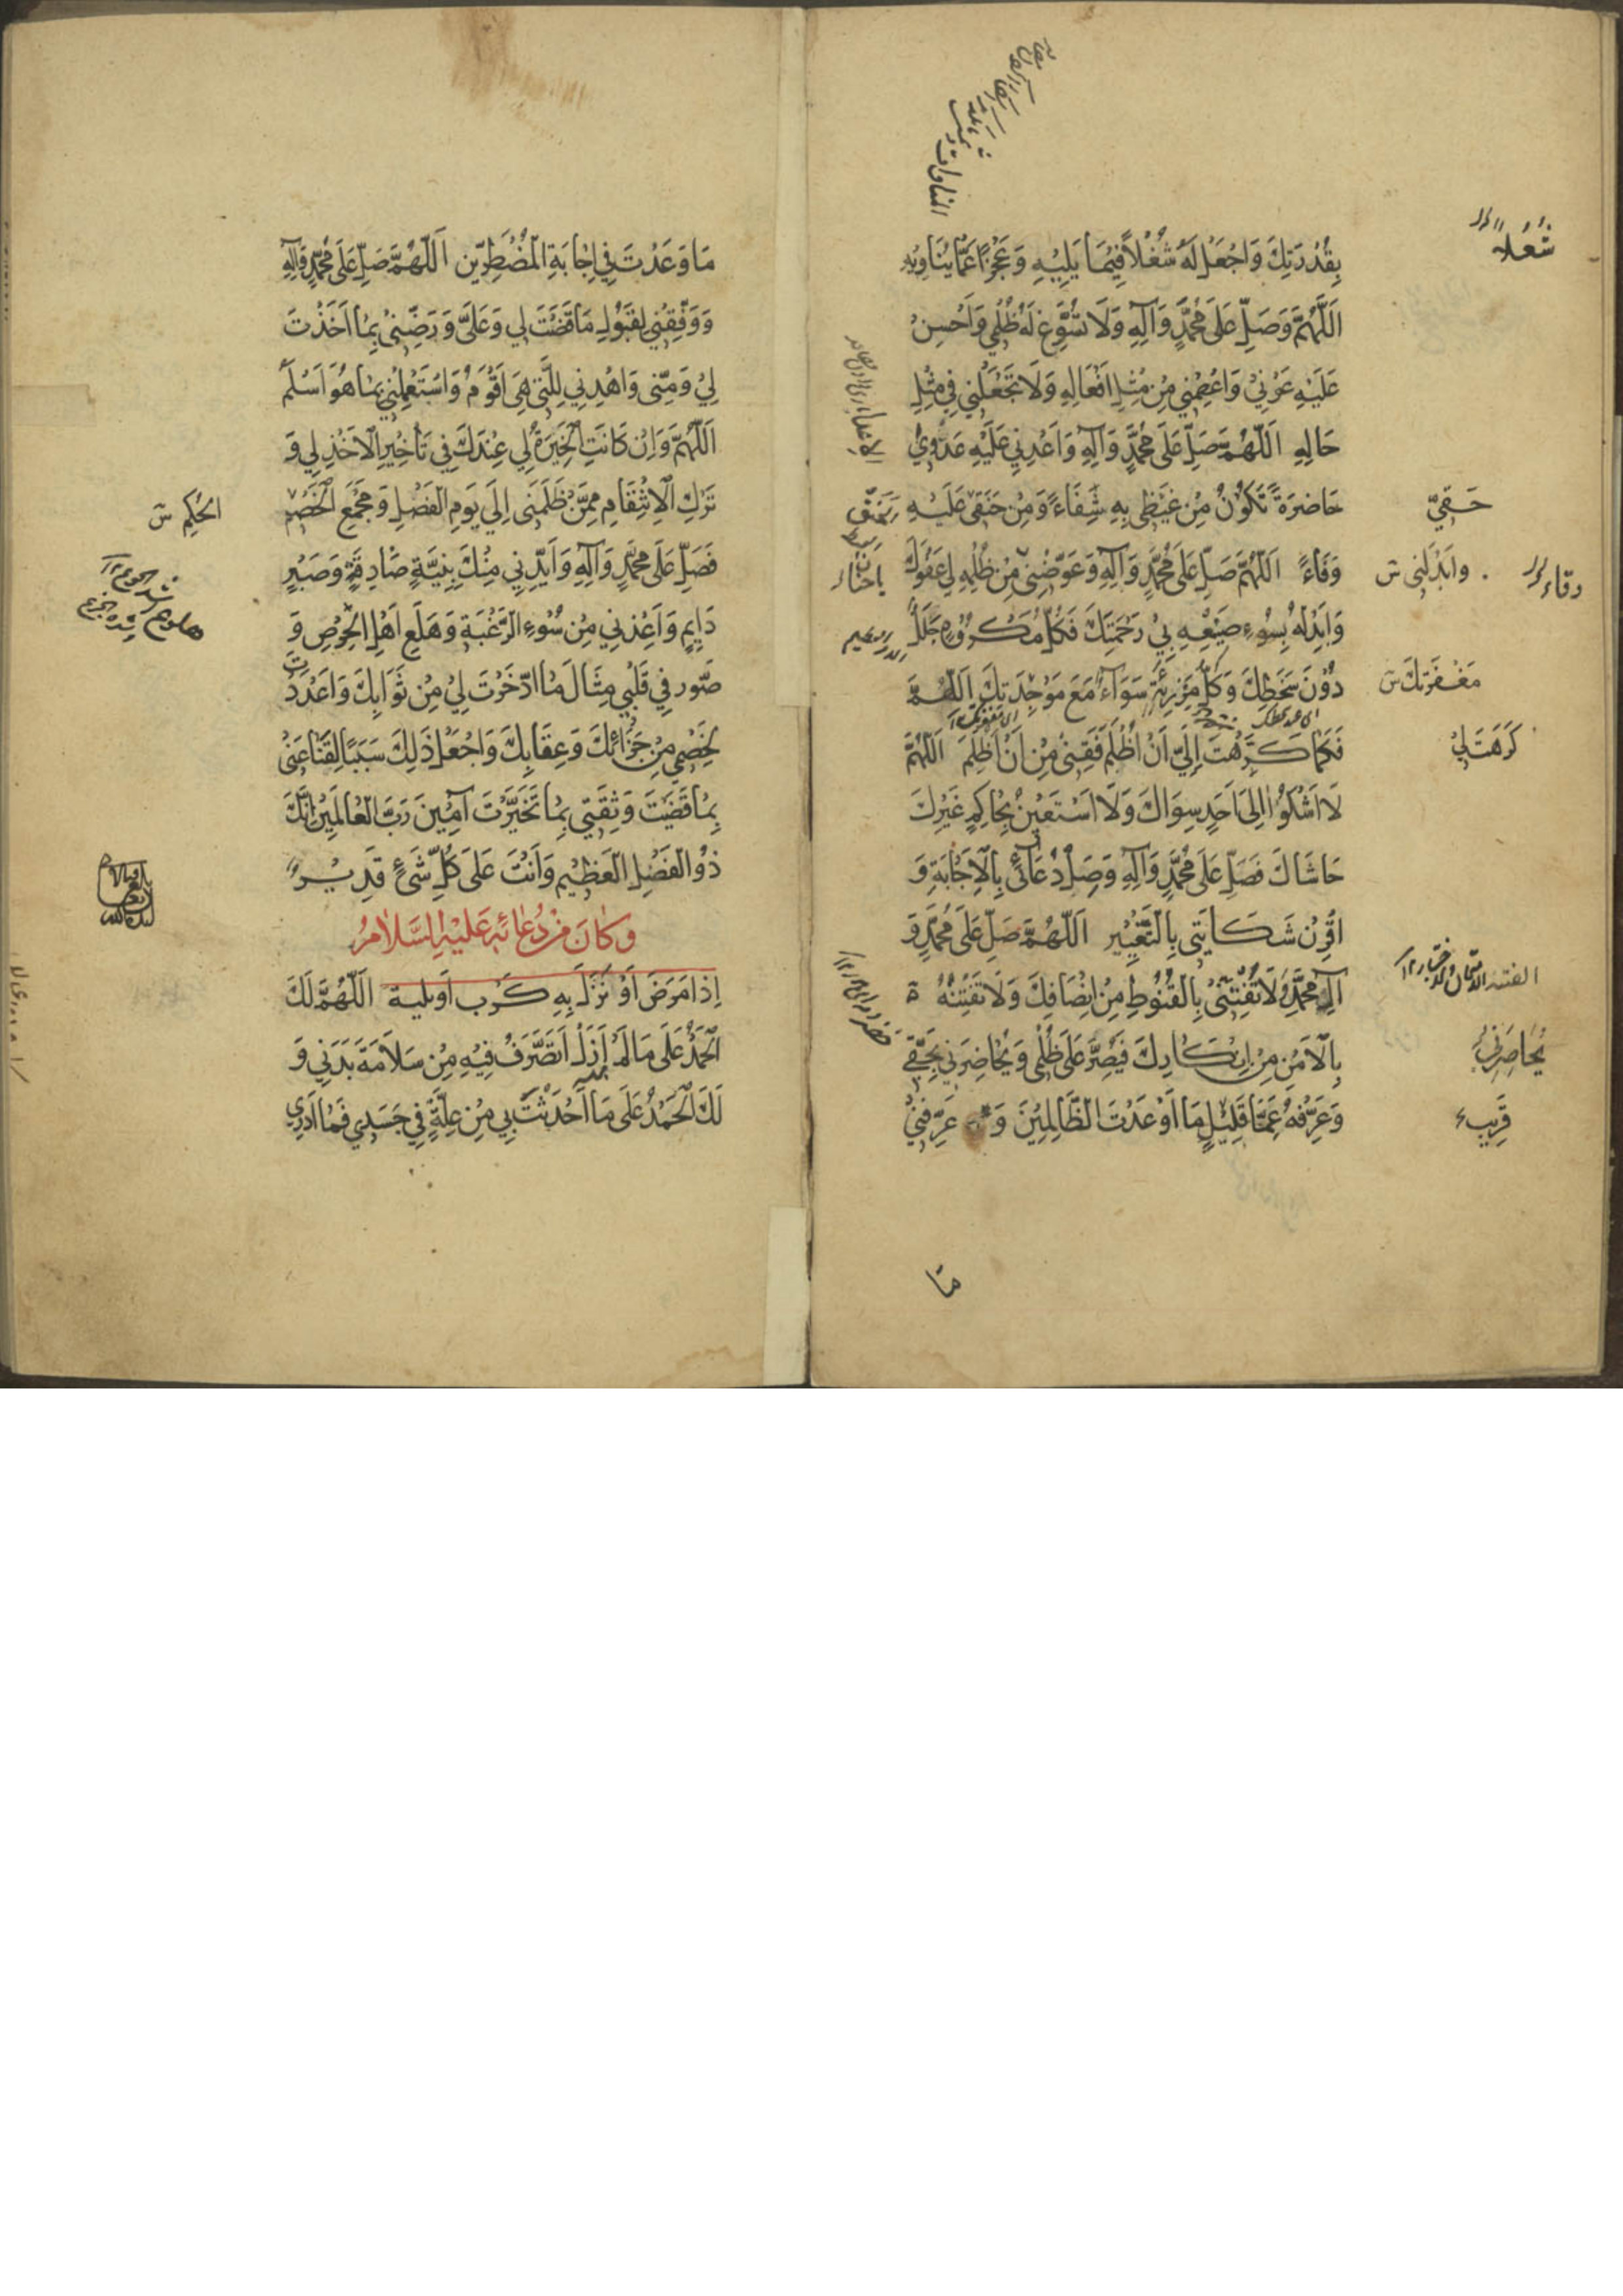 بِقُدْرَتِكَ وَاجْعَلْ لَهُ شُغْلًا فِيمَا يَلِيهِ وَعَجْزًا عَمَّا يُنَاوِيهِ
اَللَّهُمَّ وَصَلِّ عَلَى مُحَمَّدٍ وَآلِهِ وَلَا تُسَوِّغْ لَهُ ظُلْمِي وَاَحْسِنْ
عَلَيْهِ عَوْنِي وَاعْصِمْنِي مِنْ مِثْلِ اَفْعَالِهِ وَلَا تَجْعَلْنِي فِي مِثْلِ
حَالِهِ اَللّهُمَّ صَلِّ عَلَى مُحَمَّدٍ وَآلِهِ وَاَعْدِنِي عَلَيْهِ عَدْوَى
حَاضِرَةً تَكُونُ مِنْ غَيْظِي بِهِ شِفَاءً وَمِنْ حَنَقِي عَلَيْهِ
وَفَاءً اَللّهُمَّ صَلِّ عَلَى مُحَمَّدٍ وَآلِهِ وَعَوِّضْنِي مِنْ ظُلْمِهِ لِي عَفْوَكَ
وَاَبْدِلْهُ بِسُوءِ صَنِيعِهِ بِي رَحْمَتَكَ فَكُلُّ مَكْرُوهٍ جَلَلٌ
دُونَ سَخَطِكَ وَكُلُّ مَرْزِئَةٍ سَوَآءٌ مَعَ مَوْجِدَتِكَ اَللّهُمَّ
فَكَمَا كَرَّهْتَ اِلَيَّ اَنْ اُظْلَمَ فَقِنِي مِنْ اَنْ اَظْلِمَ اَللّهُمَّ
لَا اَشْكُو اِلَى اَحَدٍ سِوَاكَ وَلَا اَسْتَعِينُ بِحَاكِمٍ غَيْرِكَ
حَاشَاكَ فَصَلِّ عَلَى مُحَمَّدٍ وَآلِهِ وَصِلْ دُعَآئِي بِالْاِجَابَةِ وَ
اقْرِنْ شَكَايَتِي بِالتَّغْيِيرِ اَللّهُمَّ صَلِّ عَلَى مُحَمَّدٍ وَ
آلِ مُحَمَّدٍ وَلَا تَفْتِنِّي بِالْقُنُوطِ مِنْ اِنْصَافِكَ وَلَا تَفْتِنْهُ
بِالْاَمْنِ مِنْ اِنْكَارِكَ فَيُصِرَّ عَلَى ظُلْمِي وَيُحَاضِرَنِي بِحَقِّي
وَعَرِّفْهُ عَمَّا قَلِيلٍ مَا اَوْعَدْتَ الظَّالِمِينَ وَ عَرِّفْنِي
شُغُلًا
حَنَقِيّ
وَابْدِلْنِي ش
مَغْفِرَتِكَ ش
كَرَهْتَ لِي
يُحَاصِرَنِي
قَرِيبٍ
مَا وَعَدْتَ فِي اِجَابَةِ الْمُضْطَرِّينَ اَللّهُمَّ صَلِّ عَلَى مُحَمَّدٍ وَآلِهِ
وَوَفِّقْنِي لِقَبُولِ مَا قَضَيْتَ لِي وَعَلَيَّ وَرَضِّنِي بِمَا اَخَذْتَ
لِي وَمِنِّي وَاهْدِنِي لِلَّتِي هِيَ اَقْوَمُ وَاسْتَعْمِلْنِي بِمَا هُوَ اَسْلَمُ
اَللّهُمَّ وَاِنْ كَانَتِ الْخِيَرَةُ لِي عِنْدَكَ فِي تَأْخِيرِ الْاَخْذِ لِي وَ
تَرْكِ الْاِنْتِقَامِ مِمَّنْ ظَلَمَنِي اِلَى يَوْمِ الْفَصْلِ وَمَجْمَعِ الْخَصْمِ
فَصَلِّ عَلَى مُحَمَّدٍ وَآلِهِ وَاَيِّدْنِي مِنْكَ بِنِيَّةٍ صَادِقَةٍ وَصَبْرٍ
دَايِمٍ وَاَعِذْنِي مِنْ سُوءِ الرَّغْبَةِ وَهَلَعِ اَهْلِ الْحِرْصِ وَ
صَوِّرْ فِي قَلْبِي مِثَالَ مَا ادَّخَرْتَ لِي مِنْ ثَوَابِكَ وَاَعْدَدْتَ
لِخَصْمِي مِنْ جَزَائِكَ وَعِقَابِكَ وَاجْعَلْ ذَلِكَ سَبَبًا لِقَنَاعَتِي
بِمَا قَضَيْتَ وَثِقَتِي بِمَا تَخَيَّرْتَ آمِينَ رَبَّ الْعَالَمِينَ اِنَّكَ
ذُو الْفَضْلِ الْعَظِيمِ وَاَنْتَ عَلَى كُلِّ شَيْءٍ قَدِيرٌ
وَكَانَ مِنْ دُعَائِهِ عَلَيْهِ السَّلَامُ
اِذَا مَرِضَ اَوْ نَزَلَ بِهِ كَرْبٌ اَوْ بَلِيَّة اَللّهُمَّ لَكَ
الْحَمْدُ عَلَى مَا لَمْ اَزَلْ اَتَصَرَّفُ فِيهِ مِنْ سَلَامَةِ بَدَنِي وَ
لَكَ الْحَمْدُ عَلَى مَا اَحْدَثْتَ بِي مِنْ عِلَّةٍ فِي جَسَدِي فَمَا اَدْرِي
الحُكْمِ ش